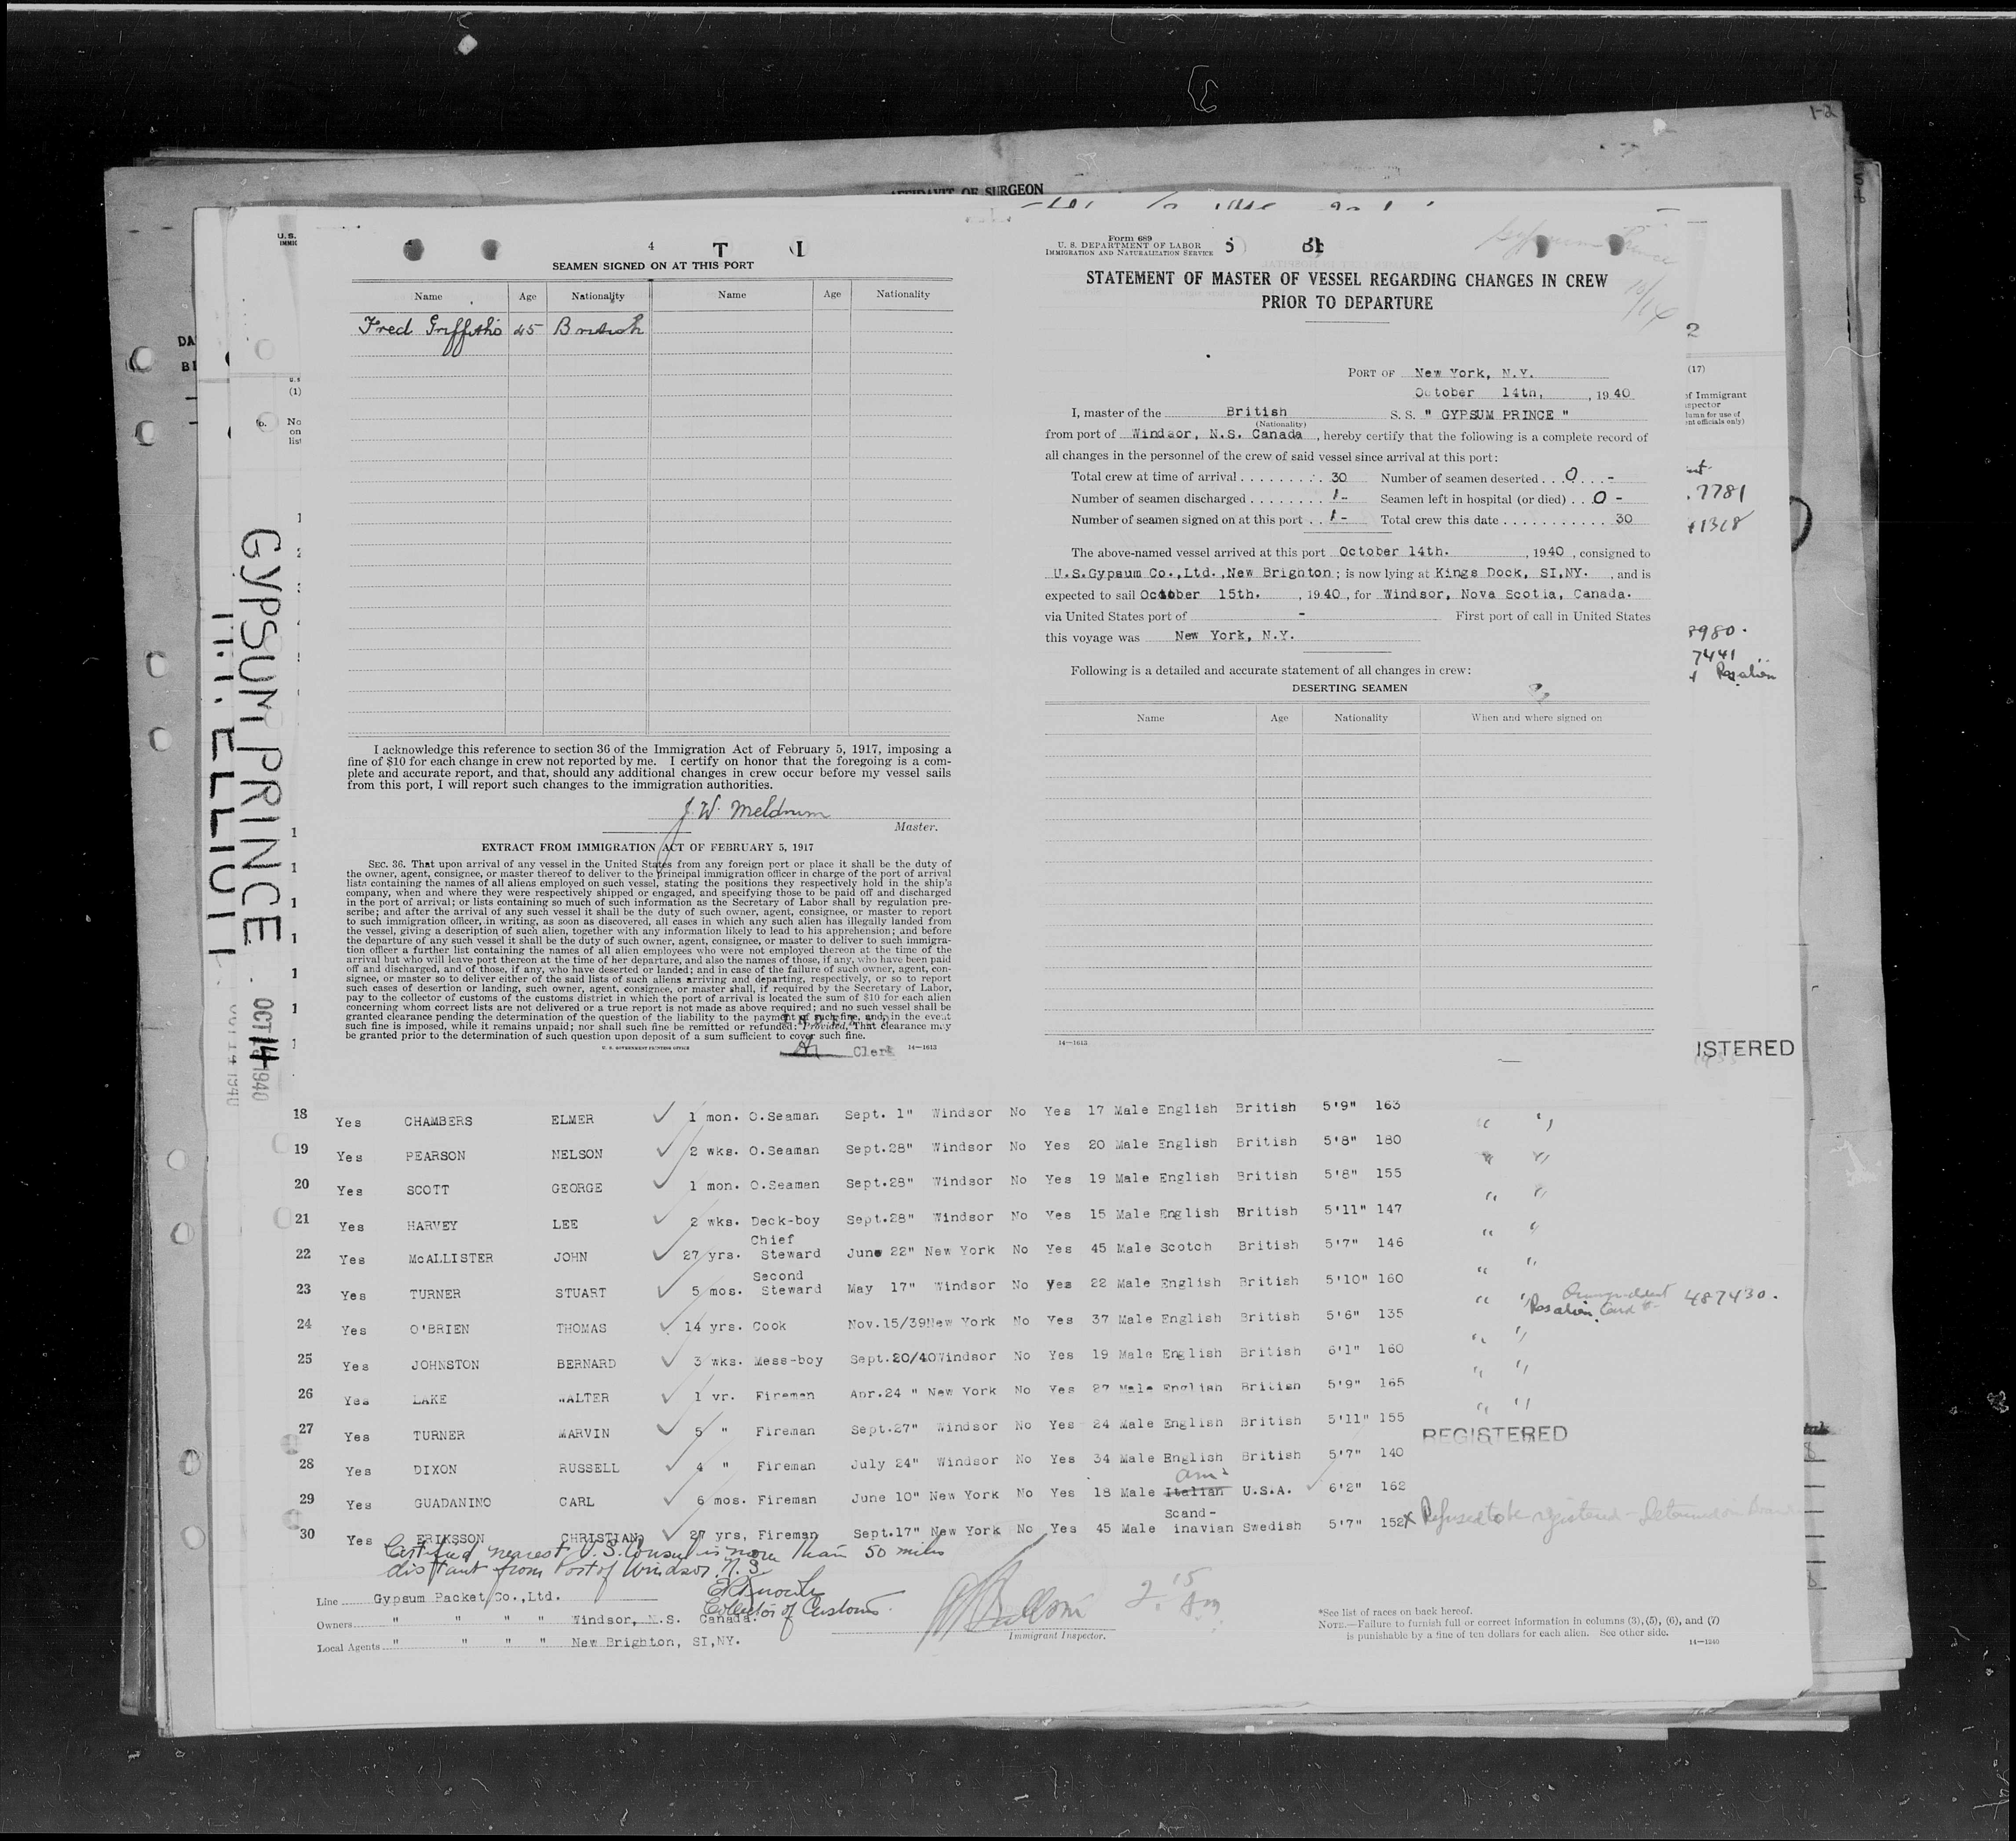 1-2
AFFIDAVIT OF SURGEON
4 T I
SEAMEN SIGNED ON AT THIS PORT
Name Age Nationality Name Age Nationality
Fred Griffiths 45 British
I acknowledge this reference to section 36 of the Immigration Act of February 5, 1917, imposing a
fine of $10 for each change in crew not reported by me. I certify on honor that the foregoing is a com-
plete and accurate report, and that, should any additional changes in crew occur before my vessel sails
from this port, I will report such changes to the immigration authorities.
J. W. Meldrum
Master.
EXTRACT FROM IMMIGRATION ACT OF FEBRUARY 5, 1917
SEC. 36. That upon arrival of any vessel in the United States from any foreign port or place it shall be the duty of
the owner, agent, consignee, or master thereof to deliver to the principal immigration officer in charge of the port of arrival
lists containing the names of all aliens employed on such vessel, stating the positions they respectively hold in the ship's
company, when and where they were respectively shipped or engaged, and specifying those to be paid off and discharged
in the port of arrival; or lists containing so much of such information as the Secretary of Labor shall by regulation pre-
scribe; and after the arrival of any such vessel it shall be the duty of such owner, agent, consignee, or master to report
to such immigration officer, in writing, as soon as discovered, all cases in which any such alien has illegally landed from
the vessel, giving a description of such alien, together with any information likely to lead to his apprehension; and before
the departure of any such vessel it shall be the duty of such owner, agent, consignee, or master to deliver to such immigra-
tion officer a further list containing the names of all alien employees who were not employed thereon at the time of the
arrival but who will leave port thereon at the time of her departure, and also the names of those, if any, who have been paid
off and discharged, and of those, if any, who have deserted or landed; and in case of the failure of such owner, agent, con-
signee, or master so to deliver either of the said lists of such aliens arriving and departing, respectively, or so to report
such cases of desertion or landing, such owner, agent, consignee, or master shall, if required by the Secretary of Labor,
pay to the collector of customs of the customs district in which the port of arrival is located the sum of $10 for each alien
concerning whom correct lists are not delivered or a true report is not made as above required; and no such vessel shall be
granted clearance pending the determination of the question of the liability to the payment of such fine, and, in the event
such fine is imposed, while it remains unpaid; nor shall such fine be remitted or refunded: Provided, That clearance may
be granted prior to the determination of such question upon deposit of a sum sufficient to cover such fine.
U. S. GOVERNMENT PRINTING OFFICE 14—1613
Clerk
Form 689
U. S. DEPARTMENT OF LABOR
IMMIGRATION AND NATURALIZATION SERVICE
Gypsum Prince
10/14
STATEMENT OF MASTER OF VESSEL REGARDING CHANGES IN CREW
PRIOR TO DEPARTURE
PORT OF New York, N.Y.
October 14th, , 1940
I, master of the British S. S. " GYPSUM PRINCE "
(Nationality)
from port of Windsor, N.S. Canada , hereby certify that the following is a complete record of
all changes in the personnel of the crew of said vessel since arrival at this port:
Total crew at time of arrival . . . . . . . . . 30 Number of seamen deserted . . . 0 . . . -
Number of seamen discharged . . . . . . . . 1 - Seamen left in hospital (or died) . . 0 -
Number of seamen signed on at this port . . 1 - Total crew this date . . . . . . . . . . . 30
The above-named vessel arrived at this port October 14th. , 1940 , consigned to
U.S.Gypsum Co.,Ltd.,New Brighton ; is now lying at Kings Dock, SI,NY. , and is
expected to sail October 15th. , 1940 , for Windsor, Nova Scotia, Canada.
via United States port of - First port of call in United States
this voyage was New York, N.Y.
Following is a detailed and accurate statement of all changes in crew:
DESERTING SEAMEN
Name Age Nationality When and where signed on
14—1613
2
(17)
of Immigrant
7781
1318
8980.
7441
Res alien
ISTERED
GYPSUM PRINCE
OCT 14 1940
18 Yes CHAMBERS ELMER 1 mon. O.Seaman Sept. 1" Windsor No Yes 17 Male English British 5'9" 163
19 Yes PEARSON NELSON 2 wks. O.Seaman Sept.28" Windsor No Yes 20 Male English British 5'8" 180
20 Yes SCOTT GEORGE 1 mon. O.Seaman Sept.28" Windsor No Yes 19 Male English British 5'8" 155
21 Yes HARVEY LEE 2 wks. Deck-boy Sept.28" Windsor No Yes 15 Male English British 5'11" 147
22 Yes McALLISTER JOHN 27 yrs. Chief Steward June 22" New York No Yes 45 Male Scotch British 5'7" 146
23 Yes TURNER STUART 5 mos. Second Steward May 17" Windsor No Yes 22 Male English British 5'10" 160
24 Yes O'BRIEN THOMAS 14 yrs. Cook Nov.15/39New York No Yes 37 Male English British 5'6" 135 Res alien Card 487430.
25 Yes JOHNSTON BERNARD 3 wks. Mess-boy Sept.20/40Windsor No Yes 19 Male English British 6'1" 160
26 Yes LAKE WALTER 1 yr. Fireman Apr.24 " New York No Yes 27 Male English British 5'9" 165
27 Yes TURNER MARVIN 5 " Fireman Sept.27" Windsor No Yes 24 Male English British 5'11" 155
REGISTERED
28 Yes DIXON RUSSELL 4 " Fireman July 24" Windsor No Yes 34 Male English British 5'7" 140
29 Yes GUADANINO CARL 6 mos. Fireman June 10" New York No Yes 18 Male Italian Am. U.S.A. 6'2" 162
30 Yes ERIKSSON CHRISTIAN 27 yrs, Fireman Sept.17" New York No Yes 45 Male Scand-inavian Swedish 5'7" 152 x Refused to be registered - Detained on board
Certified nearest U.S. Consul is more than 50 miles
distant from Port of Windsor. N.S.
Collector of Customs.
Line Gypsum Packet Co.,Ltd.
Owners " " " " Windsor, N.S. Canada.
Local Agents " " " " New Brighton, SI,NY.
Immigrant Inspector.
*See list of races on back hereof.
NOTE.—Failure to furnish full or correct information in columns (3), (5), (6), and (7)
is punishable by a fine of ten dollars for each alien. See other side.
14—1240